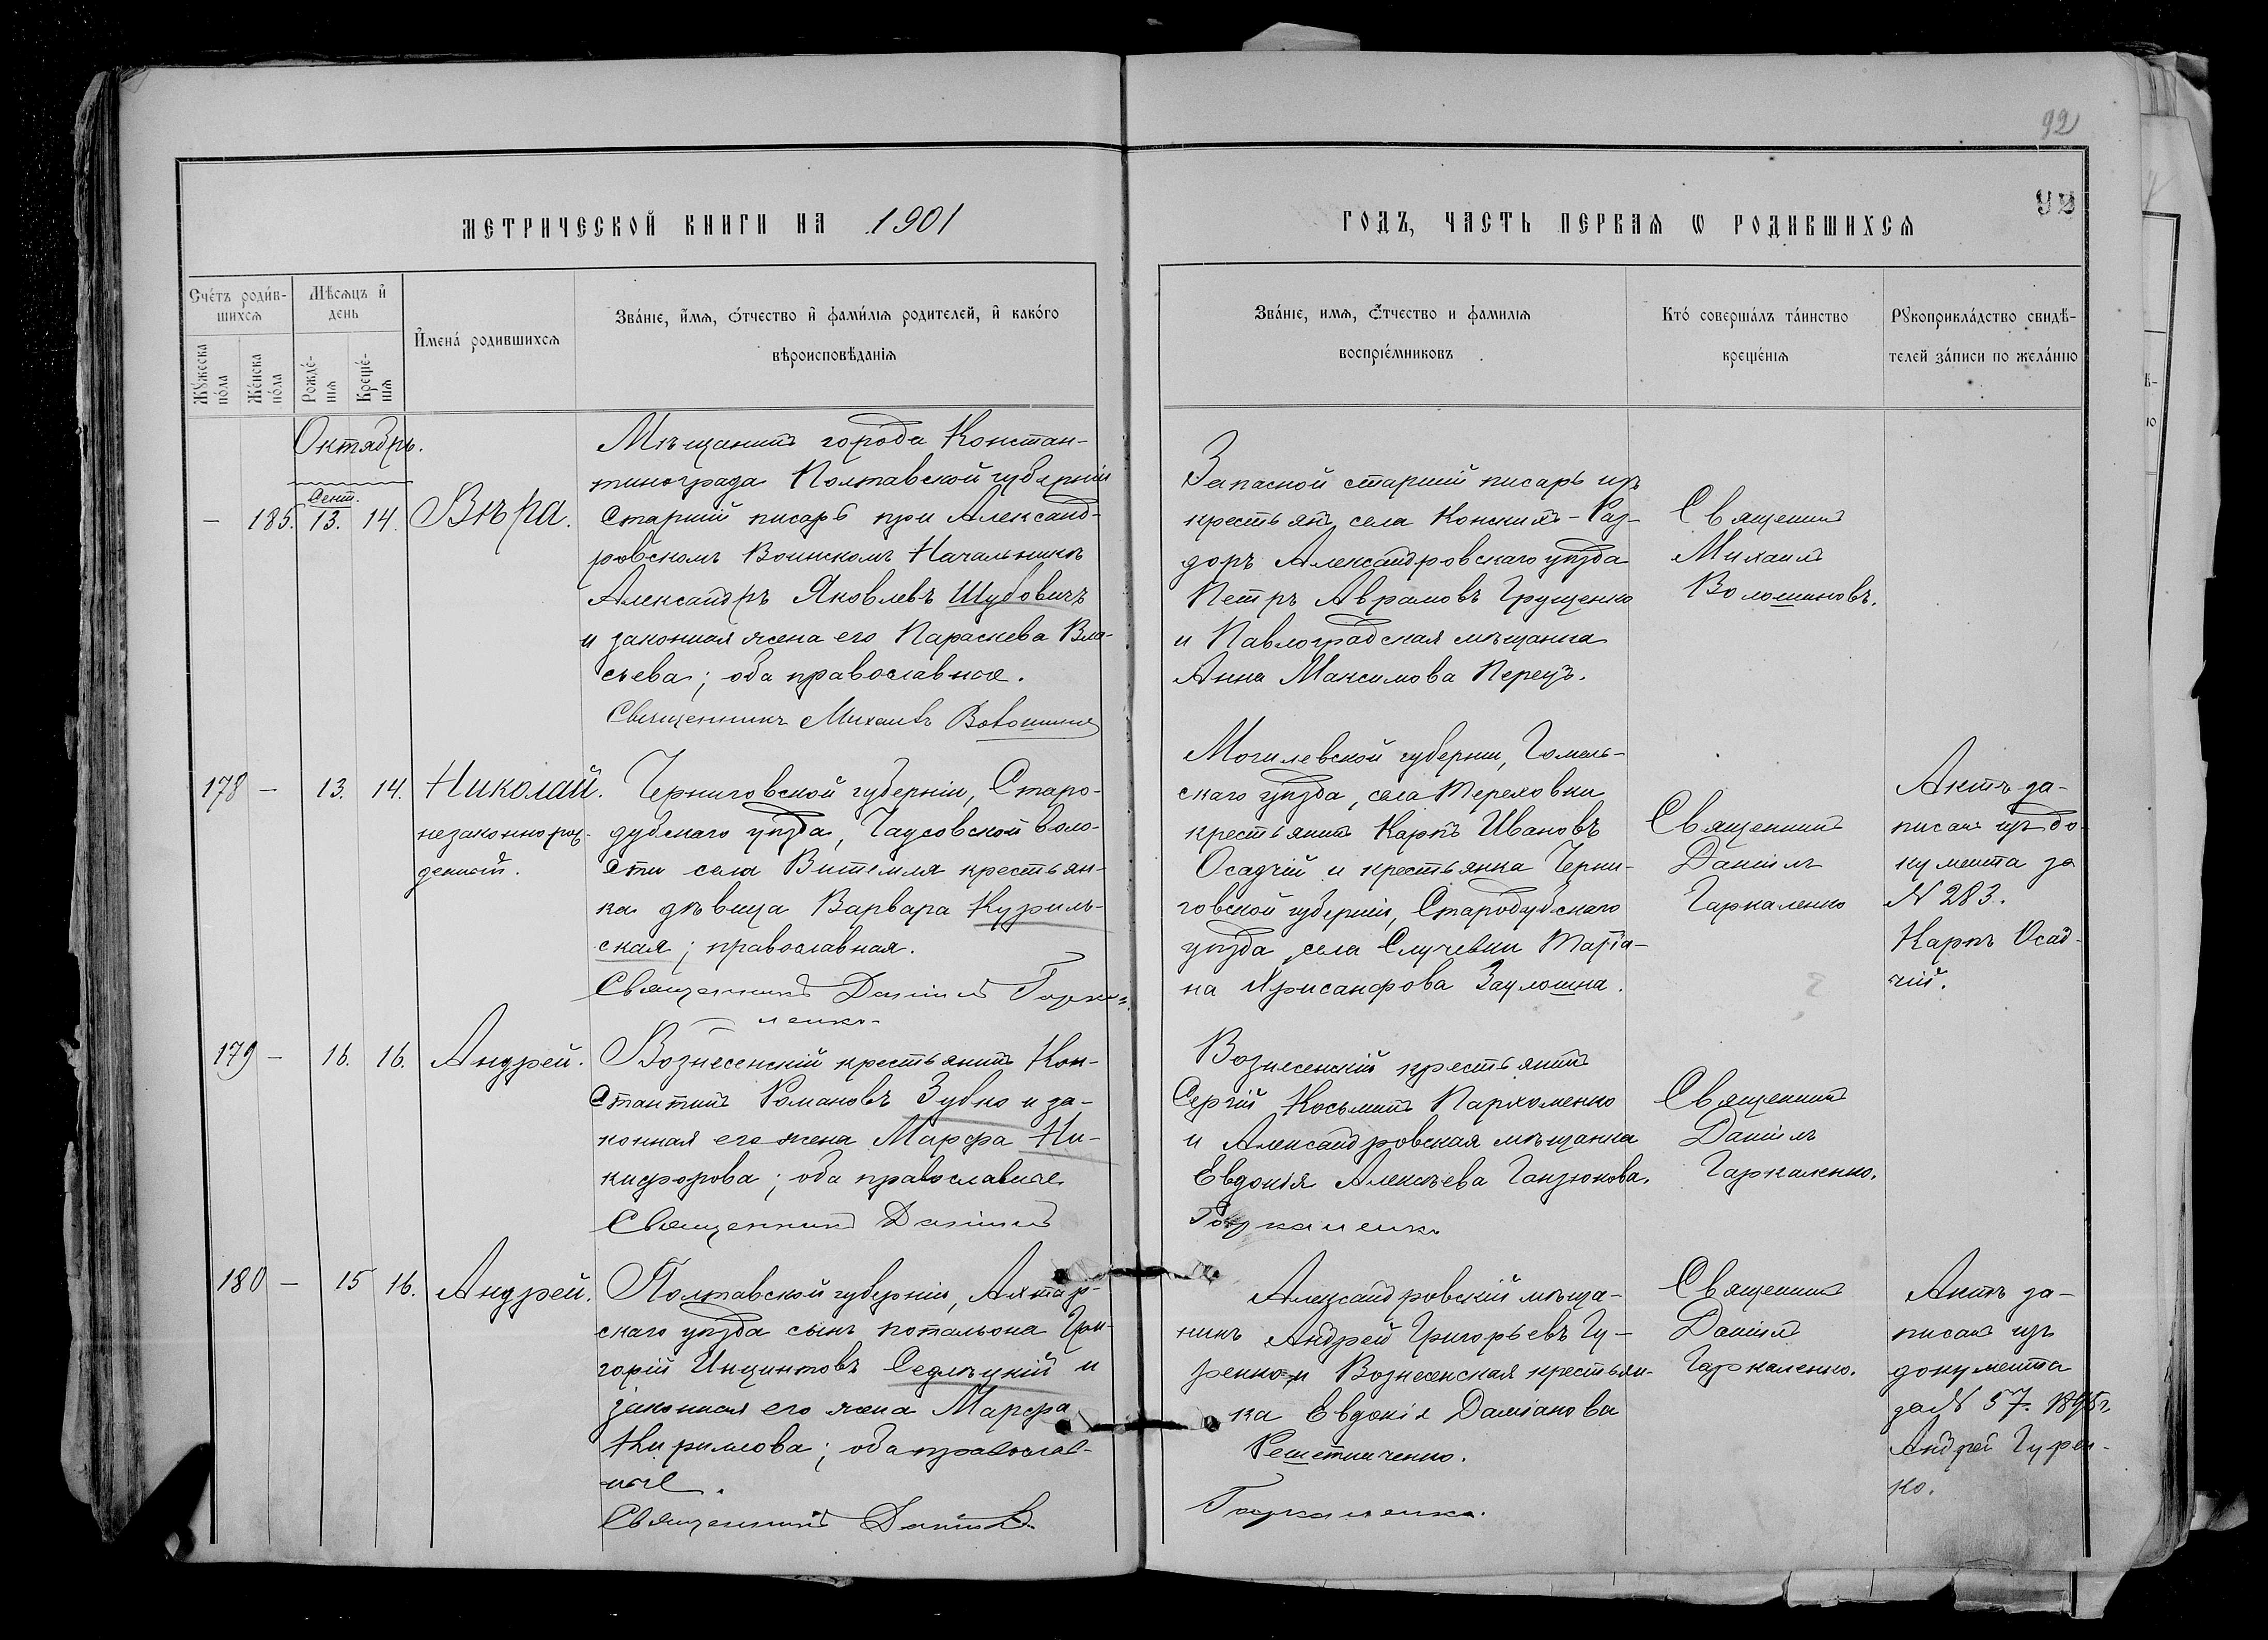 92
92
МЕТРИЧЕСКОЙ КНИГИ НА 1901
ГОДЪ, ЧАСТЬ ПЕРВАЯ Ѡ РОДИВШИХСЯ
Счётъ родив-
шихся
Мѣсяцъ и
день
Имена родившихся
Званіе, имя, отчество и фамилія родителей, и какого
вѣроисповѣданія
Мужеска
пола
Женска
пола
Рожде-
нія
Креще-
нія
Званіе, имя, отчество и фамилія
воспріемниковъ
Кто совершалъ таинство
крещенія
Рукоприкладство свидѣ-
телей записи по желанію
Октябрь.
— 185. Сент. 13. 14. Вѣра.
Мѣщанинъ города Констан-
тинограда Полтавской губерніи
старшій писарь при Александ-
ровскомъ Воинскомъ Начальникѣ
Александръ Яковлевъ Шубовичъ
и законная жена его Параскева Вла-
сьева; оба православные.
Священникъ Михаилъ Волошинов
Запасной старшій писарь изъ
крестьянъ села Конскихъ-Раз-
доръ Александровскаго уѣзда
Петръ Аврамовъ Грущенко
и Павлоградская мѣщанка
Анна Максимова Перецъ.
Священникъ
Михаилъ
Волошиновъ.
178 — 13. 14. Николай.
незаконнорож-
денный.
Черниговской губерніи, Старо-
дубскаго уѣзда, Чаусовской воло-
сти села Витемля крестьян-
ка дѣвица Варвара Куриль-
ская; православная.
Священникъ Даніилъ Гарка-
ленко
Могилевской губерніи, Гомель-
скаго уѣзда, села Тереховки
крестьянинъ Карпъ Ивановъ
Осадчій и крестьянка Черни-
говской губерніи, Стародубскаго
уѣзда, села Случевки Маріа-
на Хрисанфова Заулошна.
Священникъ
Даніилъ
Гаркаленко
Актъ за-
писанъ изъ до-
кумента за
N 283.
Карпъ Осад-
чій.
179 — 16. 16. Андрей.
Вознесенскій крестьянинъ Кон-
стантинъ Романовъ Зубко и за-
конная его жена Марфа Ни-
кифорова; оба православные
Священникъ Даніилъ
Вознесенскій крестьянинъ
Сергій Косьминъ Пархоменко
и Александровская мѣщанка
Евдокія Алексѣева Ганзюкова.
Гаркаленко
Священникъ
Даніилъ
Гаркаленко.
180 — 15 16. Андрей.
Полтавской губерніи, Ахтыр-
скаго уѣзда сынъ почтальона Гри-
горій Инцинтовъ Седлѣцкій и
законная его жена Марфа
Кирилова; оба православ-
ные.
Священникъ Даніилъ
Александровскій мѣща-
нинъ Андрей Григорьевъ Гу-
ренко и Вознесенская крестьян-
ка Евдокія Даміанова
Решетниченко.
Гаркаленко.
Священникъ
Даніилъ
Гаркаленко.
Актъ за-
писанъ изъ
документа
за N 57. 1895г.
Андрей Гурен-
ко.